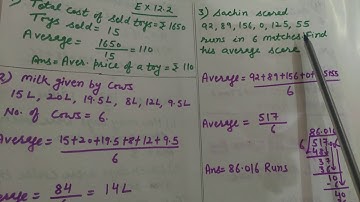 E x 12.2
1) Total cost of sold toys = ₹ 1650
Toys sold = 15
Average = 1650/15 = 110
Ans = Aver. price of a toy = ₹ 110
2) Milk given by cows
15 L, 20 L, 19.5 L, 8L, 12L, 9.5L
No. of Cows = 6.
Average = 15+20+19.5+8+12+9.5/6
= 84/6 = 14L
3) Sachin scored
92, 89, 156, 0, 125, 55
runs in 6 matches find
his average score
Average = 92+89+156+0+125+55/6
Average = 517/6
Ans = 86.016 Runs
86.016
6 517
-48
37
36
10
-6
40